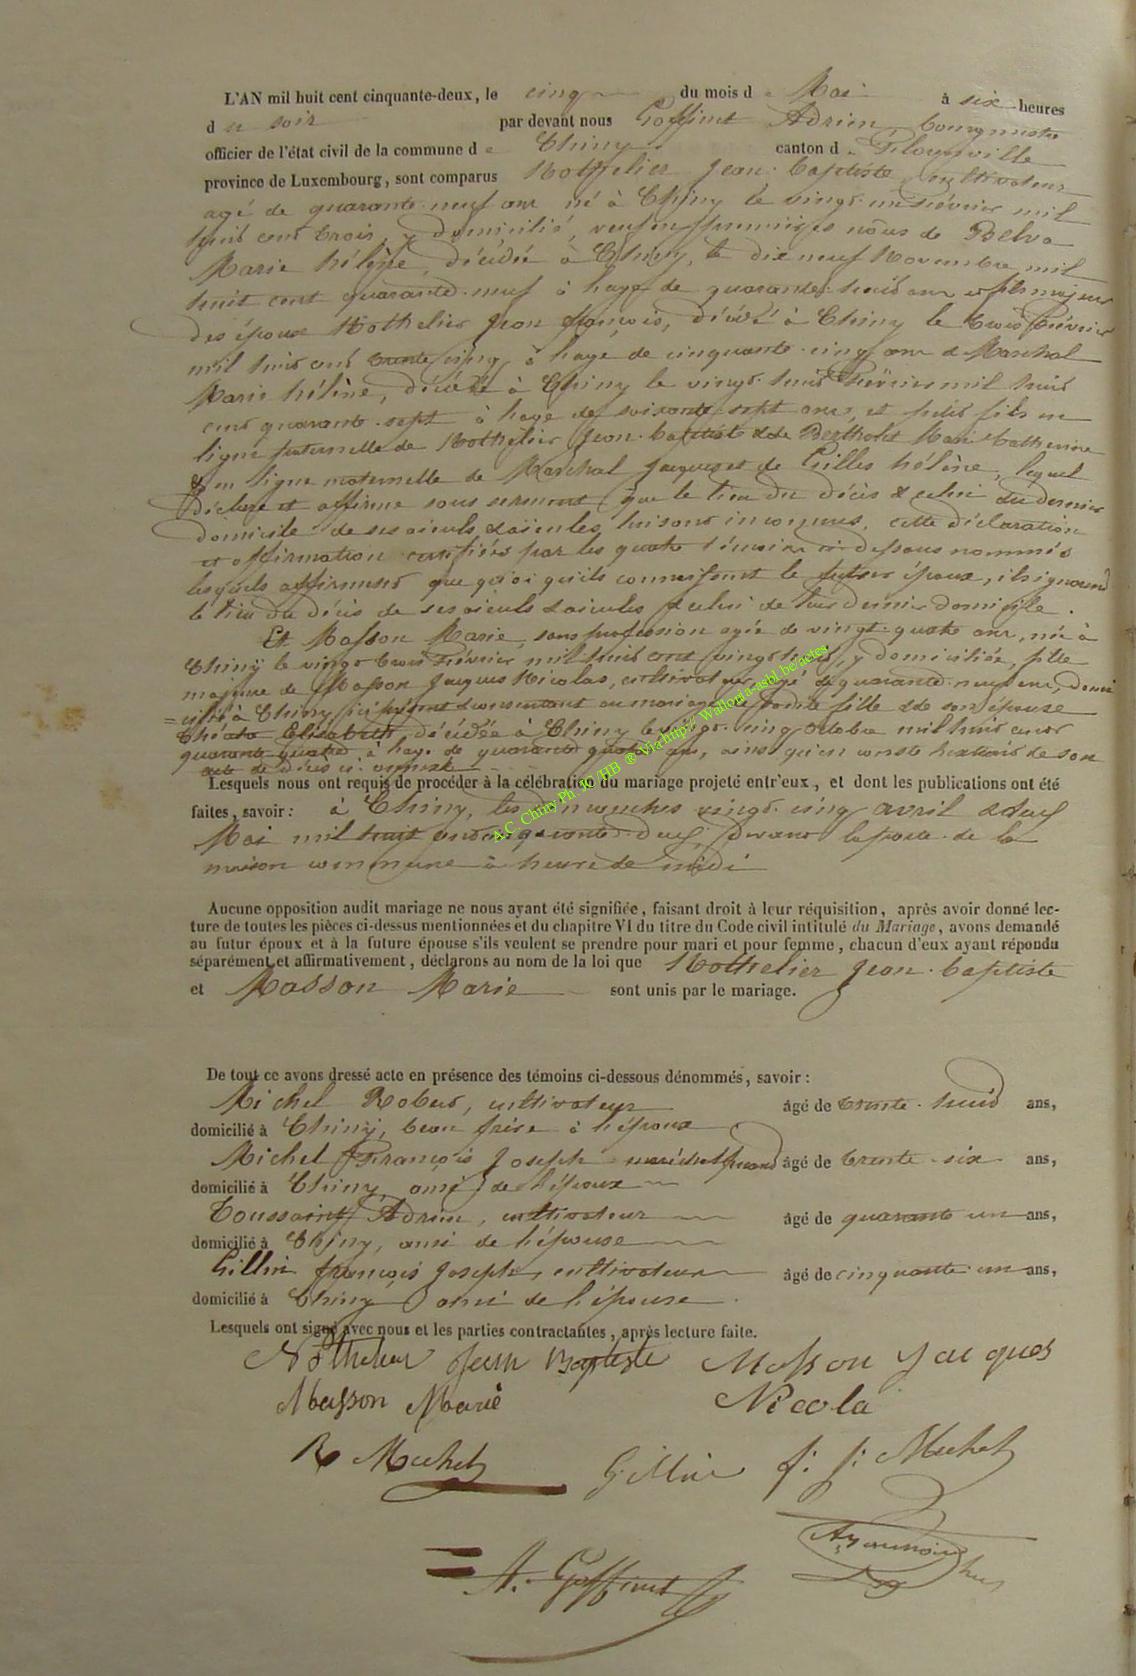 L'AN mil huit cent cinquante-deux, le cinq du mois de Mai à six heures
du soir par devant nous Goffinet Adrien bourgmestre
officier de l'état civil de la commune de Chiny canton de Florenville
province de Luxembourg, sont comparus Nothelier Jean-baptiste cultivateur
agé de quarante-neuf ans né à Chiny le vingt un février mil
huit cent trois, y domicilié, veuf en premières nôces de Belva
Marie hélène, décédée à Chiny, le dix neuf Novembre mil
huit cent quarante-neuf à l'age de quarante-huit ans et fils majeur
des époux Nothelier Jean françois, décédé à Chiny le trois février
mil huit cent trente cinq à l'age de cinquante-cinq ans & Marchal
Marie hélène, décédée à Chiny le vingt-huit février mil huit
cent quarante-sept à l'age de soixante-sept ans, et petit fils en
ligne paternelle de Nothelier Jean-baptiste & de Bertholet Marie Catherine
& en ligne maternelle de Marchal Jacques et de Gilles hélène, lequel
déclare et affirme sous serment que le lieu du décès & celui du dernier
domicile de ses aieuls & aïeules, lui sont inconnus, cette déclaration
et affirmation certifiées par les quatre témoins ci-dessous nommés
lesquels affirment que quoi qu'ils connaissent le futur époux, ils ignorent
le lieu du décès de ses aieuls & aieules & celui de leur dernier domicile.
Et Masson Marie, sans profession agée de vingt-quatre ans, née à
Chiny le vingt trois février mil huit cent vingt huit, y domiciliée, fille
majeure de Masson Jacques Nicolas, cultivateur agé de quarante-neuf ans, domi
=cilié à Chiny, ici présent & consentant au mariage de sadite fille & de son épouse
Elisabeth, décédée à Chiny le vingt-cinq Octobre mil huit cent
quarante quatre à l'age de quarante quatre ans, ainsi qu'en conste l'extrait de son
acte de décès ci annexé
Lesquels nous ont requis de procéder à la célébration du mariage projeté entr'eux, et dont les publications ont été
faites, savoir: à Chiny, les dimanches vingt-cinq avril & deux
Mai mil huit cent cinquante-deux, devant la porte de la
maison commune à heure de midi
A.C. Chiny Ph. JC/HB ® Via http://Wallonia-asbl.be/actes
Aucune opposition audit mariage ne nous ayant été signifiée, faisant droit à leur réquisition, après avoir donné lec-
ture de toutes les pièces ci-dessus mentionnées et du chapitre VI du titre du Code civil intitulé du Mariage, avons demandé
au futur époux et à la future épouse s'ils veulent se prendre pour mari et pour femme, chacun d'eux ayant répondu
séparément et affirmativement, déclarons au nom de la loi que Nothelier Jean-baptiste
et Masson Marie sont unis par le mariage.
De tout ce avons dressé acte en présence des témoins ci-dessous dénommés, savoir:
Michel Robert, cultivateur âgé de trente-huit ans,
domicilié à Chiny, beau frère à l'époux
Michel François Joseph maréchal ferrand âgé de trente-six ans,
domicilié à Chiny, ami de l'époux
Toussaint Adrien, cultivateur âgé de quarante un ans,
domicilié à Chiny, ami de l'épouse
Gillin françois Joseph, cultivateur âgé de cinquante-un ans,
domicilié à Chiny ami de l'épouse.
Lesquels ont signé avec nous et les parties contractantes, après lecture faite.
Nothelier Jean Baptiste Masson Jacques
Masson Marie Nicola
R Michel Gillin f: j: Michel
A. Goffinet